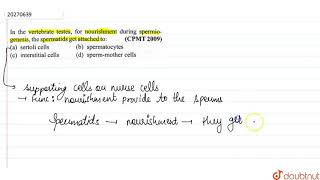 20270639
In the vertebrate testes, for nourishment during spermio-
genesis, the spermatids get attached to: (CPMT 2009)
(a) sertoli cells (b) spermatocytes
(c) interstitial cells (d) sperm-mother cells
→ supporting cells or nurse cells
→ func: nourishment provide to the sperms
Spermatids → nourishment → they get
doubtnut